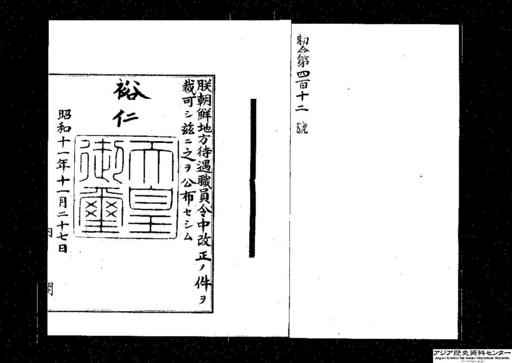 勅令第四百十二號
朕朝鮮地方待遇職員令中改正ノ件ヲ
裁可シ玆ニ之ヲ公布セシム
裕仁
天皇
御璽
昭和十一年十一月二十七日
内閣
アジア歴史資料センター
Japan Center for Asian Historical Records